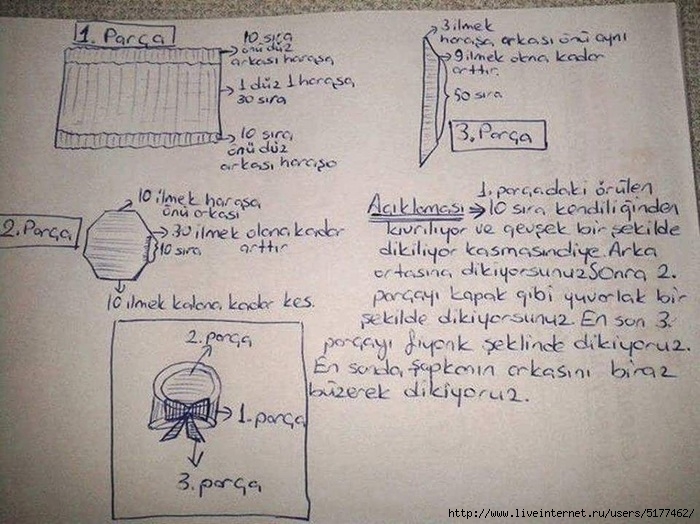 1. Parça
10 sıra
önü düz
arkası haraşa
1 düz 1 haraşa
30 sıra
10 sıra
önü düz
arkası haraşo
3 ilmek
haraşa arkası önü aynı
9 ilmek olana kadar
arttır
50 sıra
3. Parça
2. Parça
10 ilmek haraşa
önü arkası
30 ilmek olana kadar
arttır
10 sıra
10 ilmek kalana kadar kes.
Açıklaması → 1. parçadaki örülen
10 sıra kendiliğinden
kıvrılıyor ve gevşek bir şekilde
dikiliyor kasmasın diye. Arka
ortasına dikiyorsunuz Sonra 2.
parçayı kapak gibi yuvarlak bir
şekilde dikiyorsunuz. En son 3.
parçayı fiyonk şeklinde dikiyoruz.
En sonda şapkanın arkasını biraz
büzerek dikiyoruz.
2. parça
1. parça
3. parça
http://www.liveinternet.ru/users/5177462/